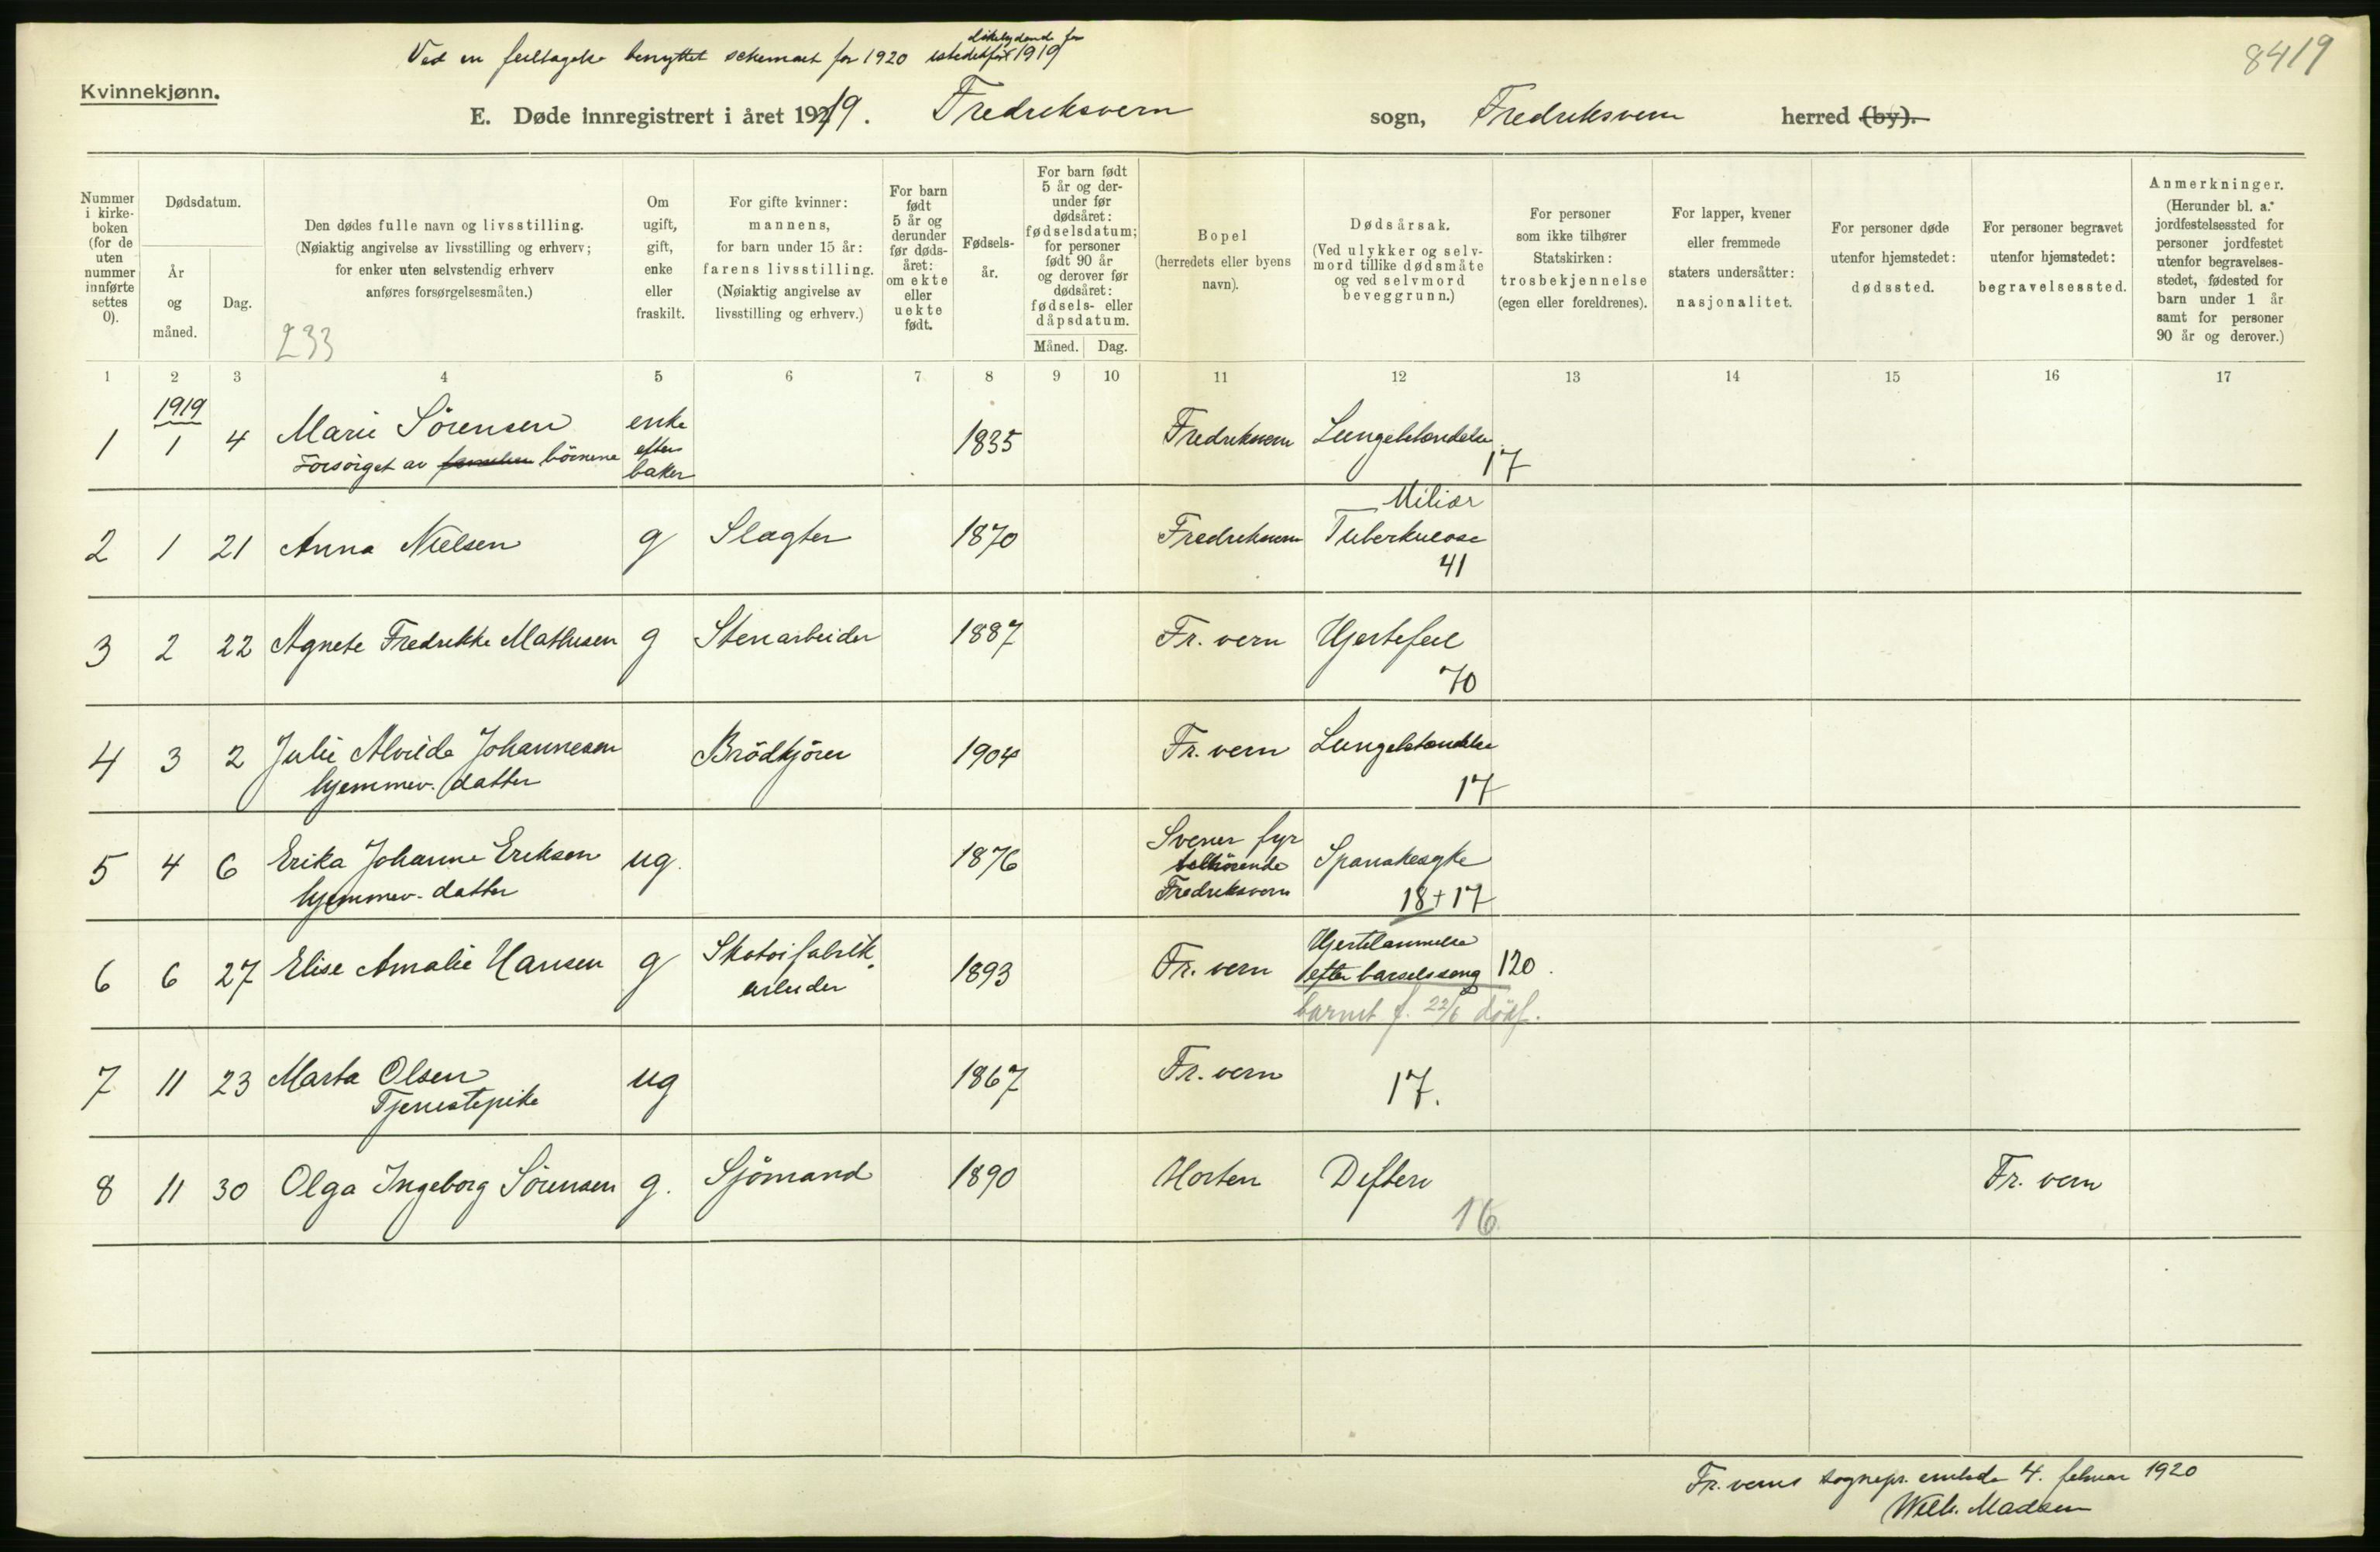 likelydende for
Ved en feiltagelse benyttet schemaet for 1920 istedetfor 1919
8419
Kvinnekjønn.
E. Døde innregistrert i året 1919. Fredriksvern sogn, Fredriksvern herred (by).
Nummer
i kirke-
boken
(for de
uten
nummer
innførte
settes
0).
Dødsdatum.
År
og
måned.
Dag.
Den dødes fulle navn og livsstilling.
(Nøiaktig angivelse av livsstilling og erhverv;
for enker uten selvstendig erhverv
anføres forsørgelsesmåten.)
233
Om
ugift,
gift,
enke
eller
fraskilt.
For gifte kvinner:
mannens,
for barn under 15 år:
farens livsstilling.
(Nøiaktig angivelse av
livsstilling og erhverv.)
For barn
født
5 år og
derunder
før døds-
året:
om ekte
eller
uekte
født.
Fødsels-
år.
For barn født
5 år og der-
under før
dødsåret:
fødselsdatum;
for personer
født 90 år
og derover før
dødsåret:
fødsels- eller
dåpsdatum.
Måned. Dag.
Bopel
(herredets eller byens
navn).
Dødsårsak.
(Ved ulykker og selv-
mord tillike dødsmåte
og ved selvmord
beveggrunn.)
For personer
som ikke tilhører
Statskirken:
trosbekjennelse
(egen eller foreldrenes).
For lapper, kvener
eller fremmede
staters undersåtter:
nasjonalitet.
For personer døde
utenfor hjemstedet:
dødssted.
For personer begravet
utenfor hjemstedet:
begravelsessted.
Anmerkninger.
(Herunder bl. a.
jordfestelsessted for
personer jordfestet
utenfor begravelses-
stedet, fødested for
barn under 1 år
samt for personer
90 år og derover.)
1 2 3 4 5 6 7 8 9 10 11 12 13 14 15 16 17
1919
1 1 4 Marie Sörensen enke 1835 Fredriksvern Lungebetændelse
Forsörget av familien börnene efter
baker 17
Miliær
2 1 21 Anna Nielsen g Slagter 1870 Fredriksvern Tuberkulose
41
3 2 22 Agnete Fredrikke Mathisen g Stenarbeider 1887 Fr. vern Hjertefeil
70
4 3 2 Julie Alvilde Johannesen Brödkjörer 1904 Fr. vern Lungebetændelse
hjemmev. datter 17
Svener fyr
5 4 6 Erika Johanne Eriksen ug. 1876 tilhörende Spanskesyke
hjemmev. datter Fredriksvern 18+17
Hjertelammelse
6 6 27 Elise Amalie Hansen g Skotöifabrik- 1893 Fr. vern efter barselseng 120.
arbeider
barnet f. 22/6 döf.
7 11 23 Marta Olsen ug 1867 Fr. vern 17.
Tjenestepike
8 11 30 Olga Ingeborg Sörensen g. Sjömand 1890 Horten Difteri Fr. vern
16.
Fr. verns sognepr. embede 4. februar 1920
Wilh. Madsen